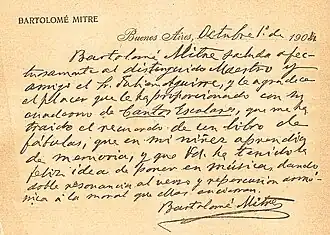 BARTOLOMÉ MITRE
Buenos Aires, Octubre 1º de 1904
Bartolomé Mitre saluda afec-
tuosamente al distinguido Maestro y
amigo el Sr. Julian Aguirre, y le agradece
el placer que le ha proporcionado con su
cuaderno de Cantos Escolares, que me ha
traido el recuerdo de un libro de
fábulas, que en mi niñez aprendí
de memoria, y que Vd. ha tenido la
feliz idea de poner en música, dando
doble resonancia al verso y repercusion armó-
nica á la moral que ellas encierran.
Bartolomé Mitre